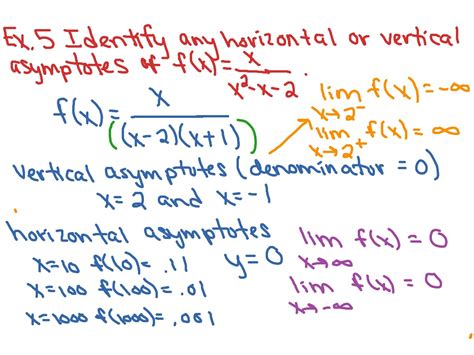 Ex. 5 Identify any horizontal or vertical
asymptotes of f(x) = x / x²-x-2 .
f(x) = x / ((x-2)(x+1))
lim f(x) = -∞
x→2⁻
lim f(x) = ∞
x→2⁺
vertical asymptotes (denominator = 0)
x = 2 and x = -1
horizontal asymptotes
x=10 f(10) = .11
x=100 f(100) = .01
x=1000 f(1000) = .001
y = 0
lim f(x) = 0
x→∞
lim f(x) = 0
x→-∞